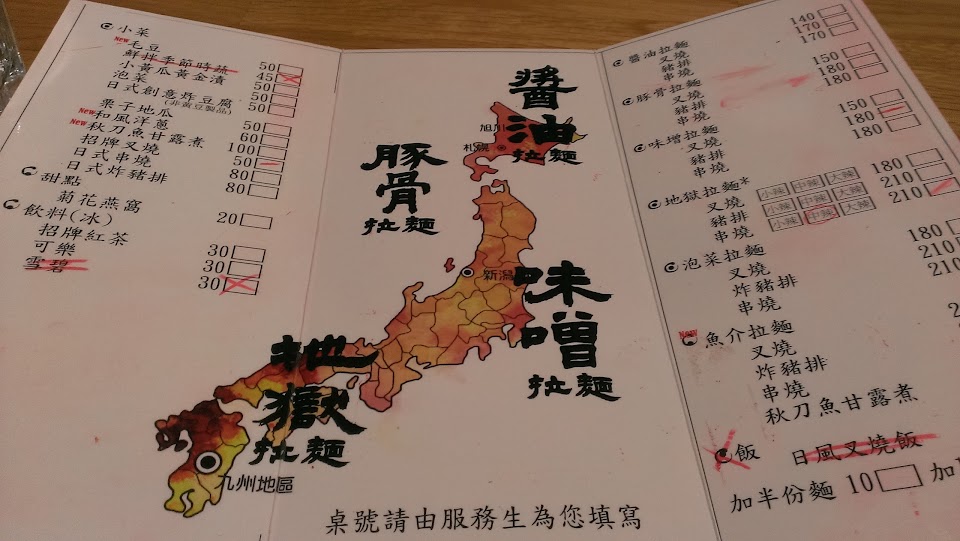 小菜
New 毛豆 50
鮮拌季節時蔬 45
小黃瓜黃金漬 50
泡菜 50
日式創意炸豆腐 50
(非黃豆製品)
栗子地瓜 50
New 和風洋蔥 60
New 秋刀魚甘露煮 100
招牌叉燒 50
日式串燒 80
日式炸豬排 80
甜點
菊花燕窩 20
飲料(冰)
招牌紅茶 30
可樂 30
雪碧 30
醬油
拉麵
旭川
札幌
豚骨
拉麵
新潟
味噌
拉麵
地獄
拉麵
九州地區
桌號請由服務生為您填寫
醬油拉麵
叉燒 140
豬排 170
串燒 170
豚骨拉麵
叉燒 150
豬排 180
串燒 180
味增拉麵
叉燒 150
豬排 180
串燒 180
地獄拉麵*
叉燒 小辣 中辣 大辣 180
豬排 小辣 中辣 大辣 210
串燒 小辣 中辣 大辣 210
泡菜拉麵
叉燒 180
炸豬排 210
串燒 210
魚介拉麵
叉燒
炸豬排
串燒
秋刀魚甘露煮
飯 日風叉燒飯
加半份麵 10 加